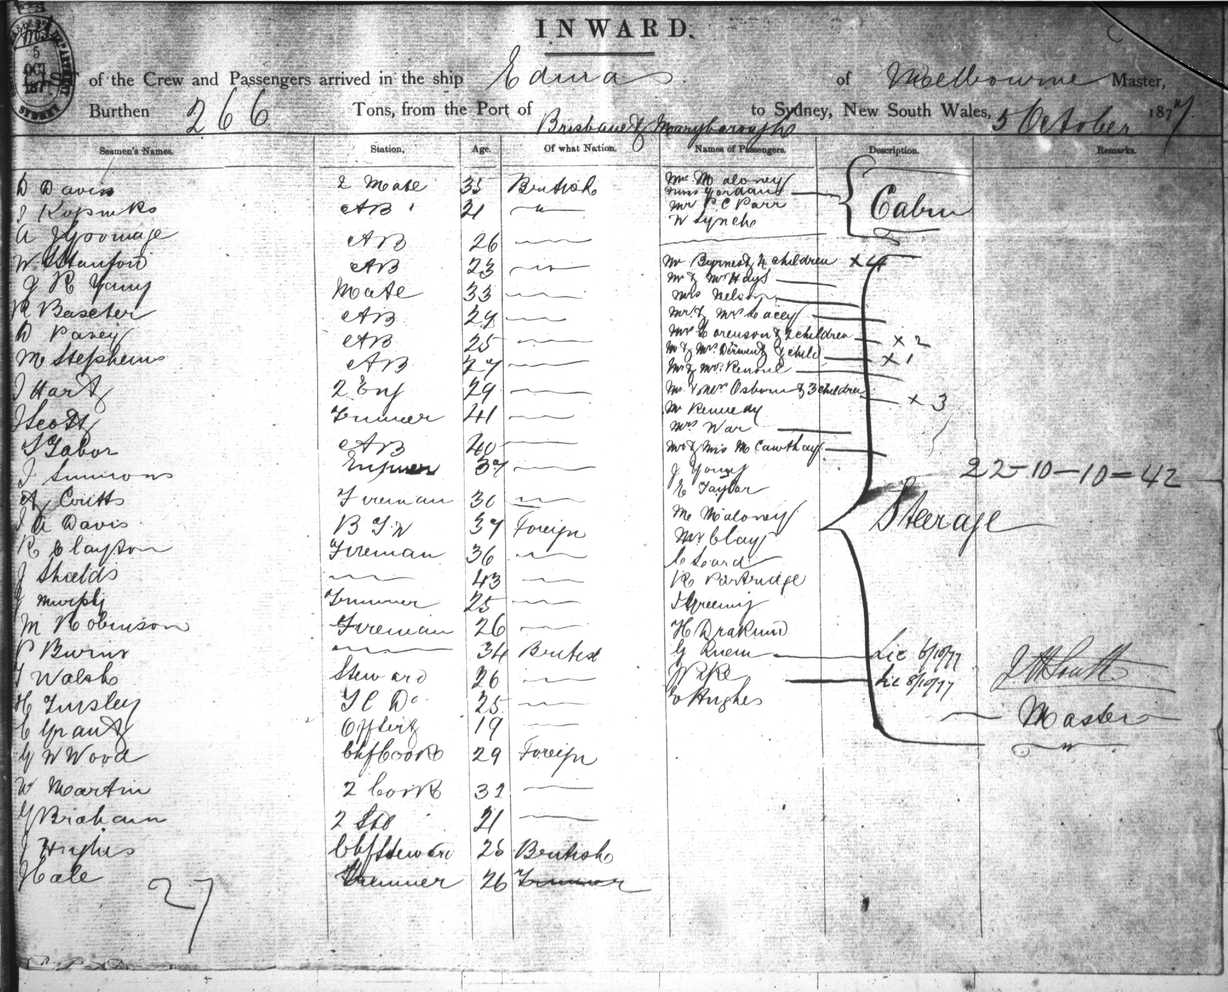 INWARD.
LIST of the Crew and Passengers arrived in the ship Edina of Melbourne Master,
Burthen 266 Tons, from the Port of Brisbane & Maryborough to Sydney, New South Wales, 5 October 1877
5
OCT
187
SYDNEY
Seamen's Names. Station, Age. Of what Nation. Names of Passengers. Description. Remarks.
D Davis 2 Mate 35 British
J AB 21 "
AB 26
W Stanford AB 23
J R Young Mate 33
R Baxter AB 29
D AB 25
M Stephens AB 27
J Hart 2 Eng 29
J Scott Trimmer 41
T Tabor AB 40
J Simmons 37
A Coutts Fireman 30
J A Davis 37 Foreign
R Clayton Fireman 36
J Shields 43
J Murphy Trimmer 25
M Robinson Fireman 26
P Burns 34 British
T Walsh Steward 26
H Tinsley F C Do 25
C Grant 19
G W Wood Chf Cook 29 Foreign
W Martin 2 Cook 32
G 2 Std 21
J Hughes Chf Steward 25 British
J Cale Trimmer 26
27
Mr Maloney
Miss Jordan
Mr P C Parr
W Lynch
Cabin
Mr & 4 children x 4
Mr & Mrs Hays
Mrs Nelson
Mr & Mrs Cacey
Mrs Sorenson & 2 children x 2
Mr & Mrs & child x 1
Mr & Mrs
Mr & Mrs Osborn & 3 children x 3
Mr Kennedy
Mrs War
Mr & Mrs McCawthay
J Young
E Taylor
22-10-10=42
M Maloney
Steerage
Mr Clay
C Leard
R Partridge
J Greening
H
G Lic 6/10/77
J Pike Lic 8/10/77
E Hughes
Master